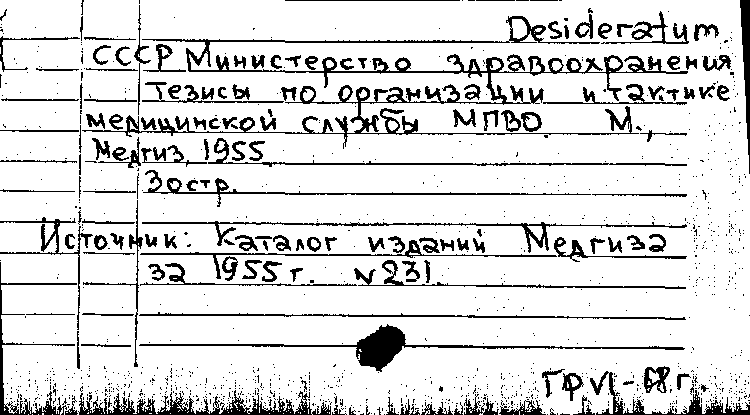 Desideratum
СССР Министерство здравоохранения
Тезисы по организации и тактике
медицинской службы МПВО. М.,
Медгиз, 1955.
30стр.
Источник: Каталог изданий Медгиза
за 1955 г. №231.
ГФ VI-68г.